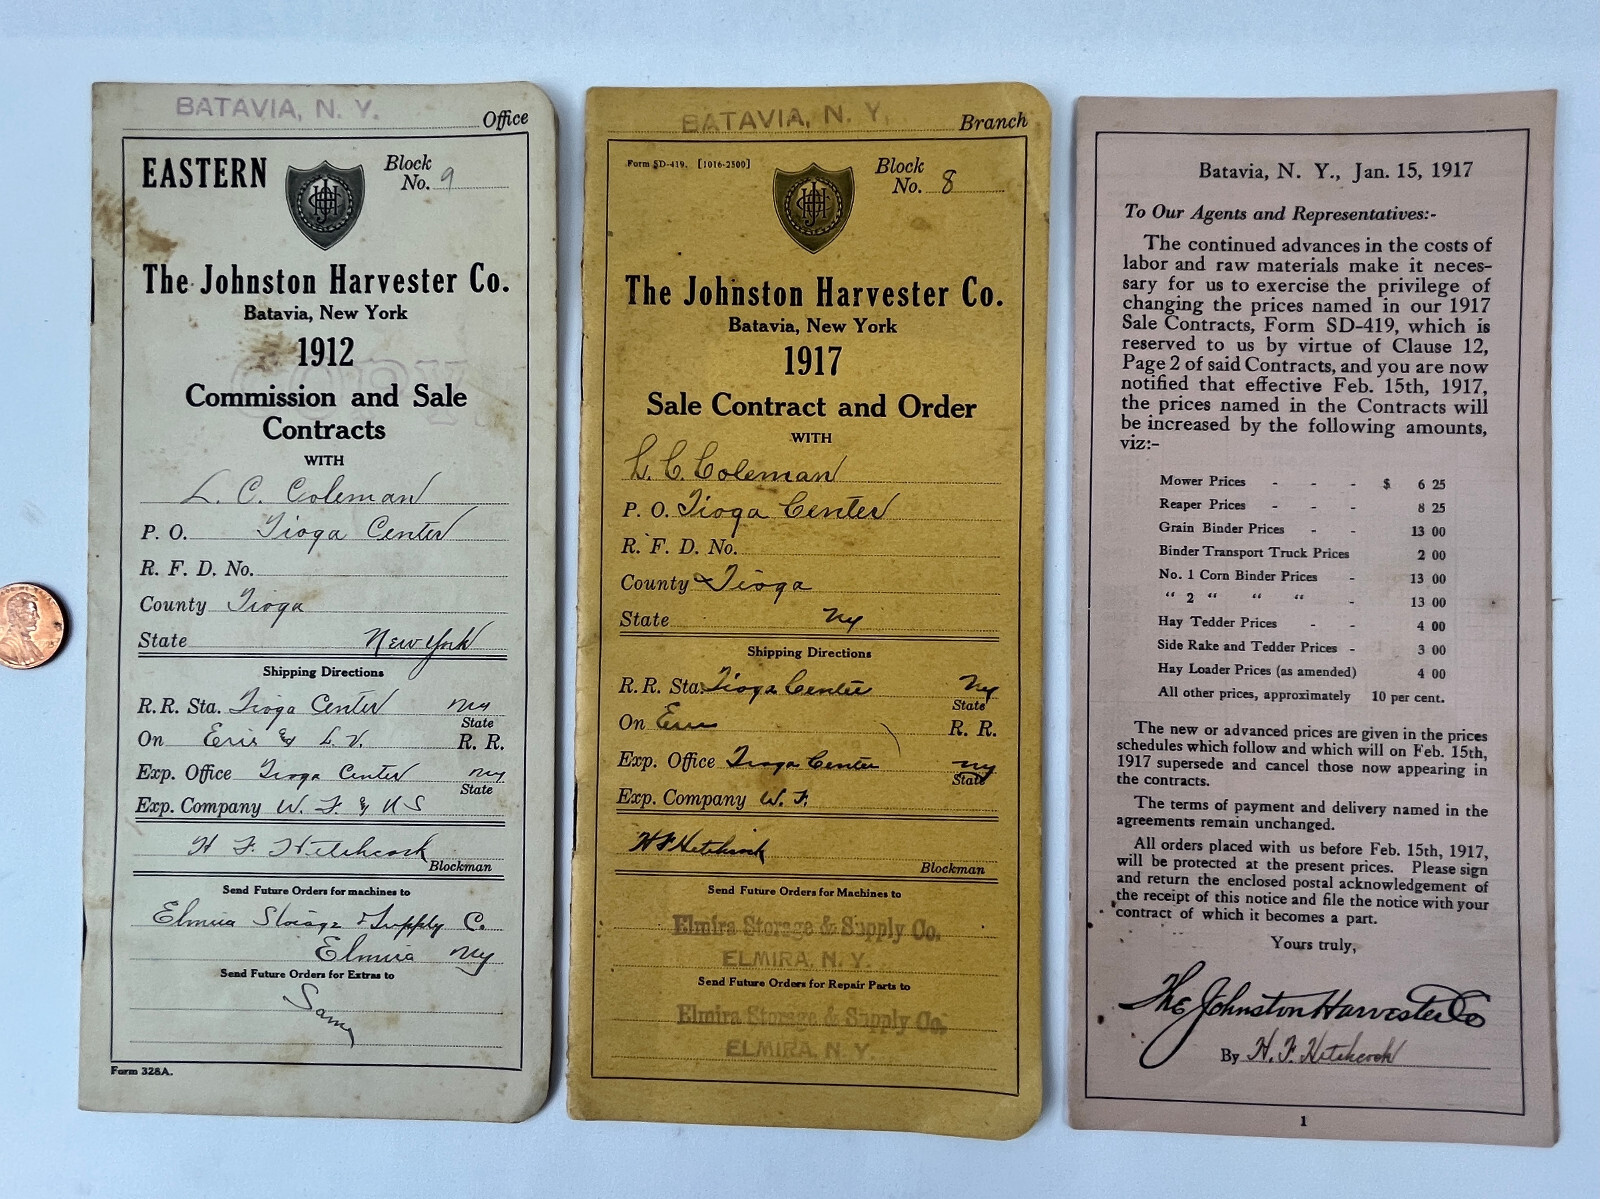 BATAVIA, N. Y. Office
EASTERN
Block
No. 9
JHCO
The Johnston Harvester Co.
Batavia, New York
1912
Commission and Sale
Contracts
WITH
L. C. Coleman
P. O. Tioga Center
R. F. D. No.
County Tioga
State New York
Shipping Directions
R. R. Sta. Tioga Center NY
State
On Erie & L. V. R. R.
Exp. Office Tioga Center NY
State
Exp. Company W. F. & U S
H F Hitchcock
Blockman
Send Future Orders for machines to
Elmira Storage & Supply Co.
Elmira NY
Send Future Orders for Extras to
Same
Form 328A.
BATAVIA, N. Y. Branch
Form SD-419. [1016-2500]
Block
No. 8
JHCO
The Johnston Harvester Co.
Batavia, New York
1917
Sale Contract and Order
WITH
L. C. Coleman
P. O. Tioga Center
R. F. D. No.
County Tioga
State NY
Shipping Directions
R. R. Sta. Tioga Center NY
State
On Erie R. R.
Exp. Office Tioga Center NY
State
Exp. Company W. F.
H F Hitchcock
Blockman
Send Future Orders for Machines to
Elmira Storage & Supply Co.
ELMIRA, N. Y.
Send Future Orders for Repair Parts to
Elmira Storage & Supply Co.
ELMIRA, N. Y.
Batavia, N. Y., Jan. 15, 1917
To Our Agents and Representatives:-
The continued advances in the costs of
labor and raw materials make it neces-
sary for us to exercise the privilege of
changing the prices named in our 1917
Sale Contracts, Form SD-419, which is
reserved to us by virtue of Clause 12,
Page 2 of said Contracts, and you are now
notified that effective Feb. 15th, 1917,
the prices named in the Contracts will
be increased by the following amounts,
viz:-
Mower Prices - - - $ 6 25
Reaper Prices - - - 8 25
Grain Binder Prices - - 13 00
Binder Transport Truck Prices 2 00
No. 1 Corn Binder Prices - 13 00
“ 2 “ “ “ - 13 00
Hay Tedder Prices - - 4 00
Side Rake and Tedder Prices - 3 00
Hay Loader Prices (as amended) 4 00
All other prices, approximately 10 per cent.
The new or advanced prices are given in the prices
schedules which follow and which will on Feb. 15th,
1917 supersede and cancel those now appearing in
the contracts.
The terms of payment and delivery named in the
agreements remain unchanged.
All orders placed with us before Feb. 15th, 1917,
will be protected at the present prices. Please sign
and return the enclosed postal acknowledgement of
the receipt of this notice and file the notice with your
contract of which it becomes a part.
Yours truly,
The Johnston Harvester Co
By H. F. Hitchcock
1